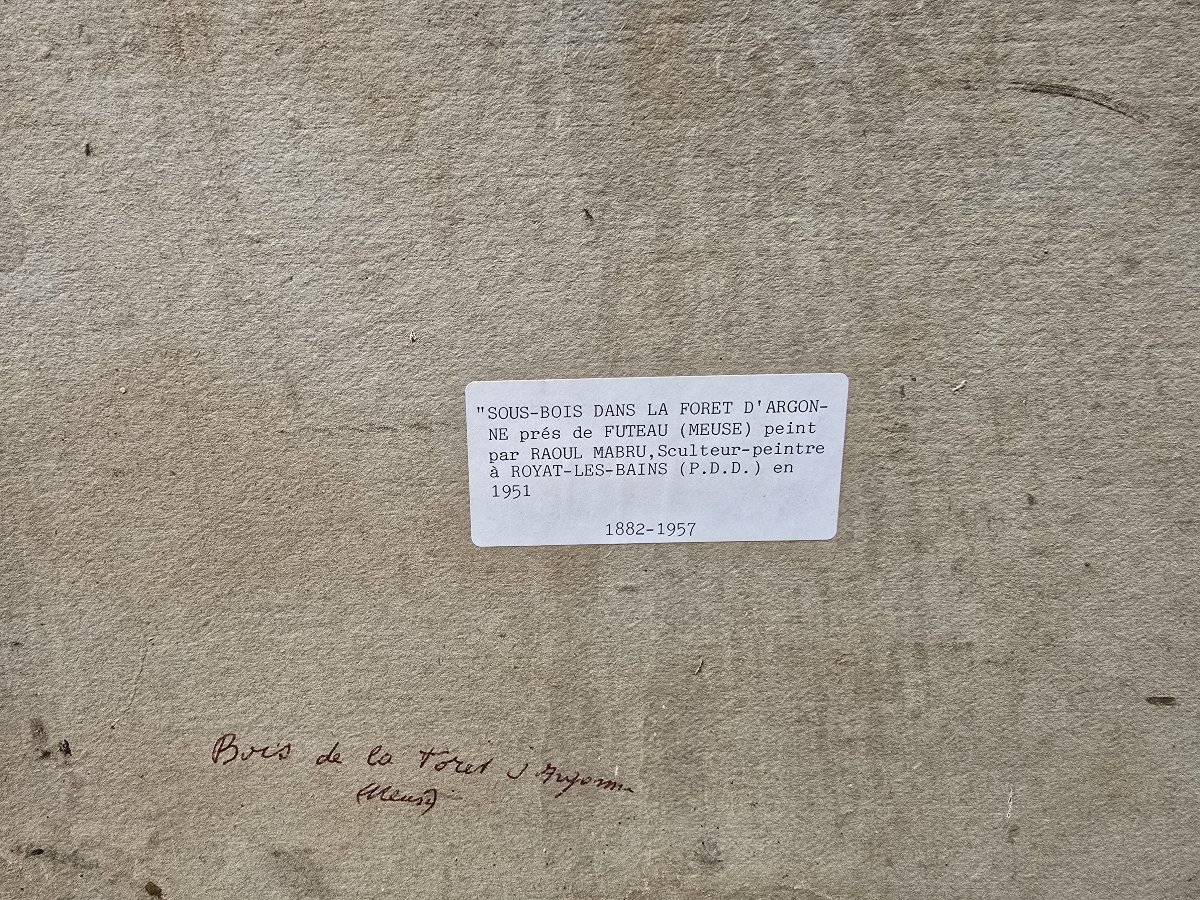 "SOUS-BOIS DANS LA FORET D'ARGON-
NE prés de FUTEAU (MEUSE) peint
par RAOUL MABRU,Sculteur-peintre
à ROYAT-LES-BAINS (P.D.D.) en
1951
1882-1957
Bois de la Foret d'Argonne
(Meuse)